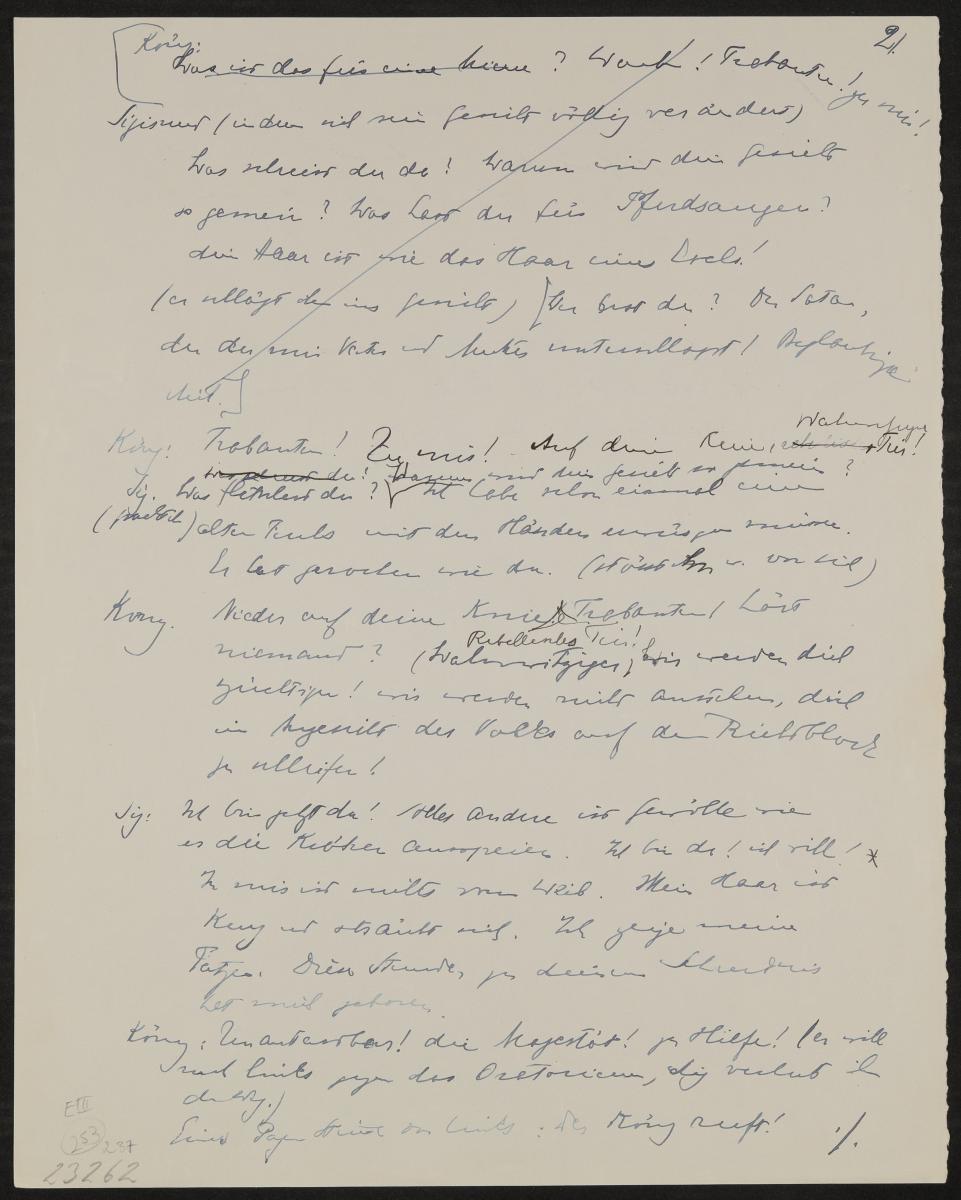 21
König:
Was ist das für eine Miene? Wache! Trabanten! zu mir!
Sigismund (indem sich sein Gesicht völlig verändert)
Was schreist du da! Warum wird dein Gesicht
so gemein? Was hast du für Pferdsaugen?
dein Haar ist wie das Haar eines Esels!
(er schlägt ihn ins Gesicht) [Wer bist du? Der Satan,
der der mir Vater und Mutter unterschlagt! Beglaubige
dich.]
Wahnsinniger
König: Trabanten! Zu mir! Auf deine Knie, Tier!
du! Warum wird dein Gesicht so gemein?
Sig. Was fletschest du? Ich habe schon einmal einen
(gräßlich) alten Fuchs mit den Händen erwürgen müssen.
Er hat gerochen wie du. (stösst ihn v. von sich)
König. Nieder auf deine Kniee! Trabanten! Hört
Rebellisches Tier!
niemand? (Wahnwitziger, wir werden dich
züchtigen! wir werden nicht anstehen, dich
im Angesicht des Volks auf den Richtblock
zu schleifen!
Sig: Ich bin jetzt da! Alles andere ist Gewölle wie
es die Krähen ausspeien. Ich bin da! ich will! *
In mir ist nichts vom Weib. Mein Haar ist
kurz und sträubt sich. Ich zeige meine
Tatzen. Diese Stunde, zu deinem Schrecknis
hat mich geboren.
König: Unantastbar! die Majestät! zu Hilfe! (er will
nach links gegen das Oratorium, Sig verlegt ihm
den Weg.)
Eines Pagen Stimme von links: der König ruft! ./.
E III
253
237
23262